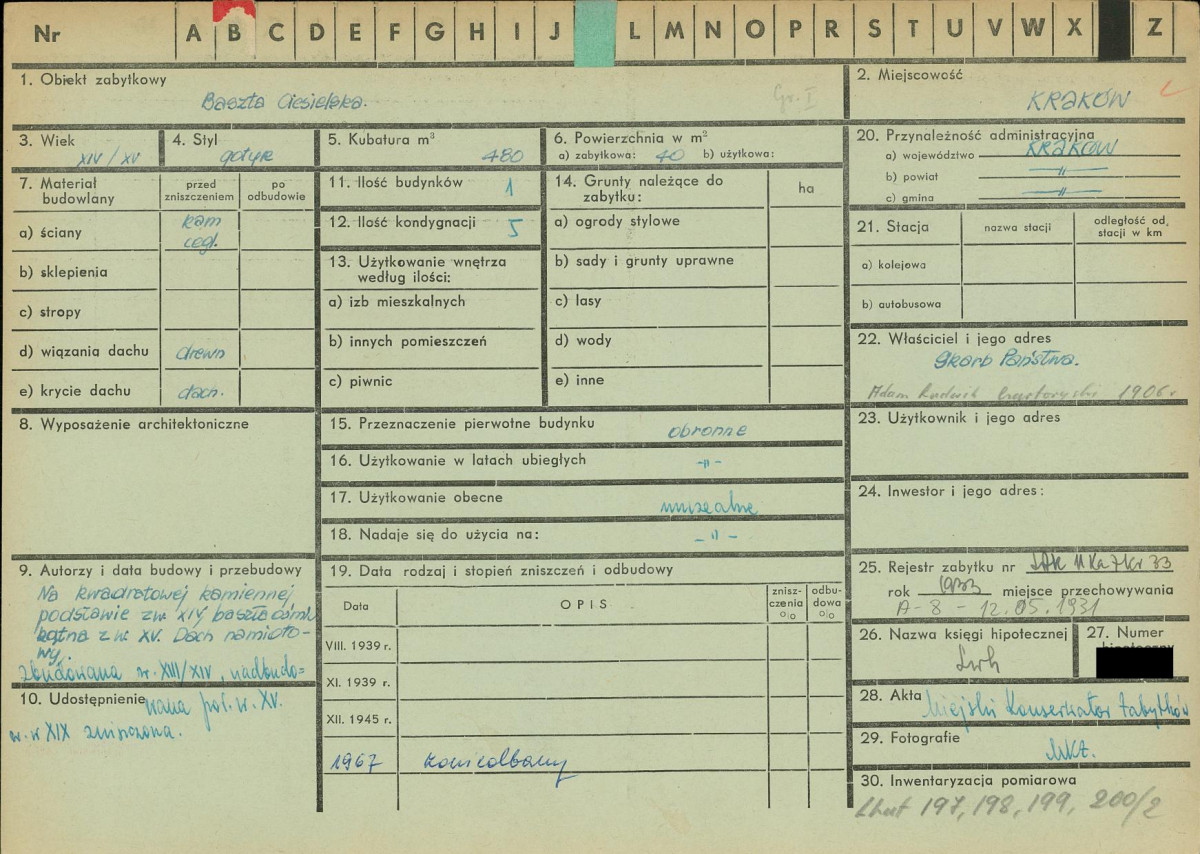 Nr A B C D E F G H I J L M N O P R S T U V W X Z
1. Obiekt zabytkowy
Baszta Ciesielska.
Gr. I
2. Miejscowość
KRAKÓW
3. Wiek
XIV/XV
4. Styl
gotyk
5. Kubatura m³
480
6. Powierzchnia w m²
a) zabytkowa: 40 b) użytkowa:
20. Przynależność administracyjna
a) województwo KRAKÓW
b) powiat -"-
c) gmina -"-
7. Materiał budowlany
przed zniszczeniem
po odbudowie
a) ściany
kam
cegl.
b) sklepienia
c) stropy
d) wiązania dachu drewn
e) krycie dachu dach.
11. Ilość budynków 1
12. Ilość kondygnacji 5
13. Użytkowanie wnętrza
według ilości:
a) izb mieszkalnych
b) innych pomieszczeń
c) piwnic
14. Grunty należące do
zabytku:
ha
a) ogrody stylowe
b) sady i grunty uprawne
c) lasy
d) wody
e) inne
21. Stacja
nazwa stacji
odległość od,
stacji w km
a) kolejowa
b) autobusowa
22. Właściciel i jego adres
Skarb Państwa.
Adam Ludwik Czartoryski 1906 r
8. Wyposażenie architektoniczne
15. Przeznaczenie pierwotne budynku obronne
16. Użytkowanie w latach ubiegłych -"-
17. Użytkowanie obecne muzealne
18. Nadaje się do użycia na: -"-
23. Użytkownik i jego adres
24. Inwestor i jego adres:
9. Autorzy i data budowy i przebudowy
Na kwadratowej kamiennej
podstawie z w. XIV, baszta ośmio
kątna z w. XV. Dach namioto-
wy.
zbudowana w. XIII/XIV, nadbudo-
10. Udostępnienie
wana poł. w. XV.
w. w XIX zniszczona.
19. Data rodzaj i stopień zniszczeń i odbudowy
Data
OPIS
znisz-
czenia
%
odbu-
dowa
%
VIII. 1939 r.
XI. 1939 r.
XII. 1945 r.
1967
25. Rejestr zabytku nr
rok 1933 miejsce przechowywania
A-8 - 12.05.1931
26. Nazwa księgi hipotecznej
Lwh
27. Numer
28. Akta
Miejski Konserwator Zabytków
29. Fotografie
MKZ.
30. Inwentaryzacja pomiarowa
197, 198, 199, 200/2